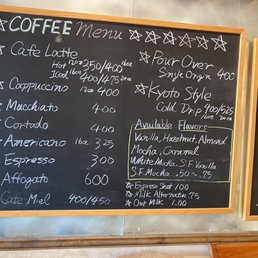 COFFEE Menu
Cafe Latte
Hot 350/400 16oz
Iced 400/475
Cappuccino 400
Macchiato 400
Cortado 400
Americano 16oz 325
Espresso 300
Affogato 600
Cafe Miel 400/450
Pour Over
Single Origin 400
Kyoto Style
Cold Drip 400/525
Available Flavors
Vanilla, Hazelnut, Almond
Mocha, Caramel
White Mocha, S.F. Vanilla
S.F. Mocha .50 ~ .75
Espresso Shot 100
Milk Alternative .75
Oat Milk 1.00